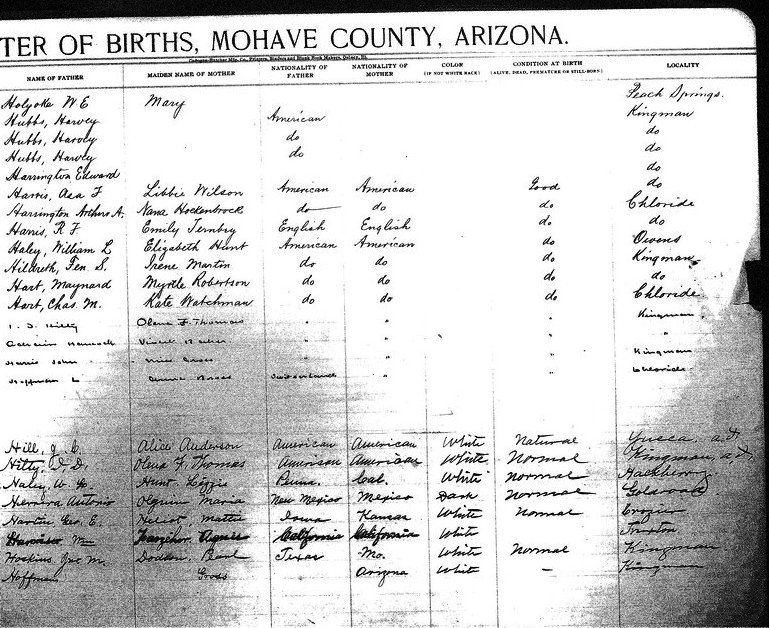 TER OF BIRTHS, MOHAVE COUNTY, ARIZONA.
NAME OF FATHER MAIDEN NAME OF MOTHER NATIONALITY OF FATHER NATIONALITY OF MOTHER COLOR (IF NOT WHITE RACE) CONDITION AT BIRTH (ALIVE, DEAD, PREMATURE OR STILL-BORN) LOCALITY
Holyoke W E Mary Peach Springs.
Hubbs, Harvey American Kingman
Hubbs, Harvey do do
Hubbs, Harvey do do
Harrington Edward do
Harris, Asa F Libbie Wilson American American Good do
Harrington Arthur A. Nana Hockenbrock do do do Chloride
Harris, R F Emily Ternbry English English do do
Haley, William L Elizabeth Hunt American American do Owens
Hildreth, Fen S. Irene Martin do do do Kingman
Hart, Maynard Myrtle Robertson do do do do
Hart, Chas. M. Kate Watchman do do do Chloride
Olena F. Thomas " " Kingman
" "
Harris John " " Kingman
Hoffman L Switzerland " " Chloride
Hill, J. C. Alice Anderson American American White Natural Yucca, a.T.
Hitty, D. D. Olena F. Thomas American American White Normal Kingman,
Haley W. L. Hunt Lizzie Penna. Cal. White Normal Hackberry
Herrera Antonio Olguin Maria New Mexico Mexico Dark Normal Goldroad
Geo. E. Mattie Iowa Kansas White Normal Crozier
Agnes California California White Truxton
Hoskins, M. Pearl Texas Mo. White Normal Kingman
Hoffman Gross Arizona White — Kingman